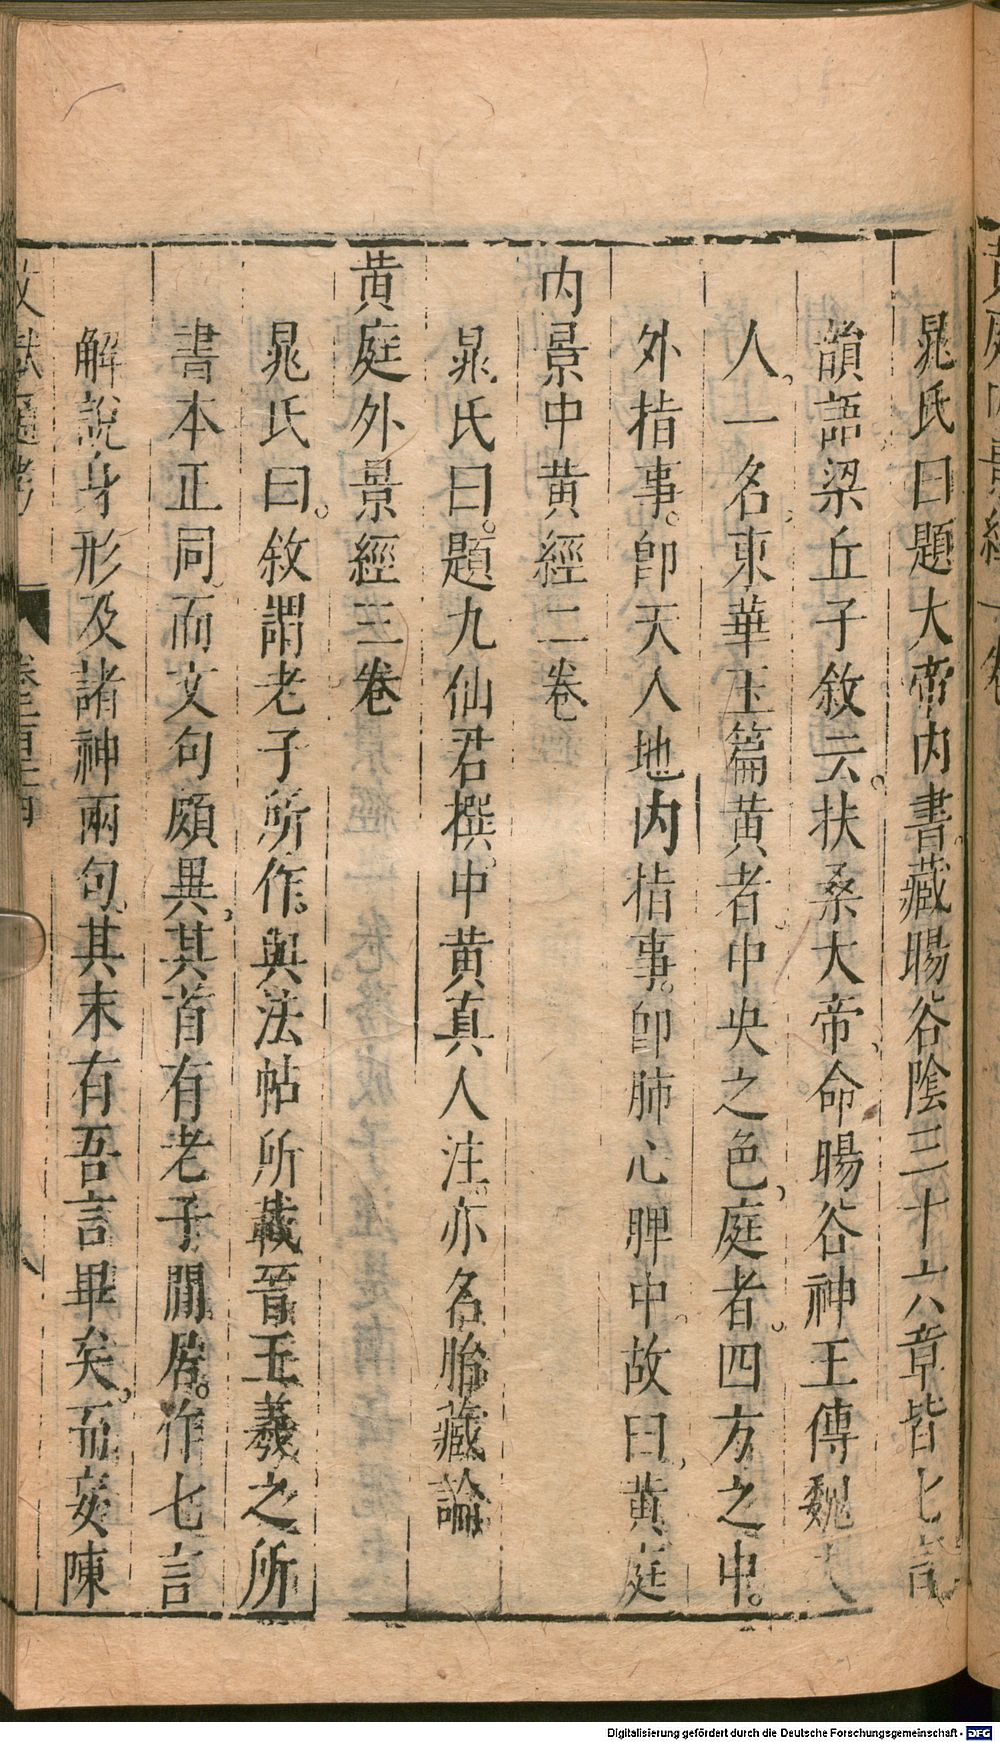 晁氏曰題大帝内書藏暘谷陰三十六章皆七言
韻語梁丘子敘云扶桑大帝命暘谷神王傳魏夫
人一名東華玉篇黄者中央之色庭者四方之中
外指事卽天人地内指事卽肺心脾中故曰黄庭
内景中黄經二卷
晁氏曰題九仙君撰中黄真人注亦名胎藏論
黄庭外景經三卷
晁氏曰敘謂老子所作與法帖所載晉王羲之所
書本正同而文句頗異其首有老子閒居作七言
解說身形及諸神兩句其末有吾言畢矣而妄陳
Digitalisierung gefördert durch die Deutsche Forschungsgemeinschaft - DFG